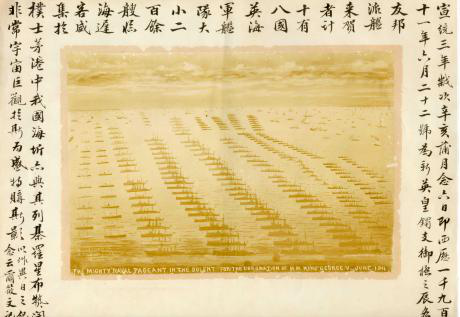 宣統三年歲次辛亥蒲月念六日即西歷一千九百
十一年六月二十二號為新英皇支御極之辰各
友邦
派艦
來賀
者計
十有
八國
英海
軍艦
隊大
小二
百餘
艘
海
咸
集於
樸士茅港中我國海圻亦與其列棊羅星布
非常宇宙巨觀於斯為盛特購斯影以念云爾
THE MIGHTY NAVAL PAGEANT IN THE SOLENT. FOR THE CORONATION OF H.M. KING GEORGE V. JUNE 1911